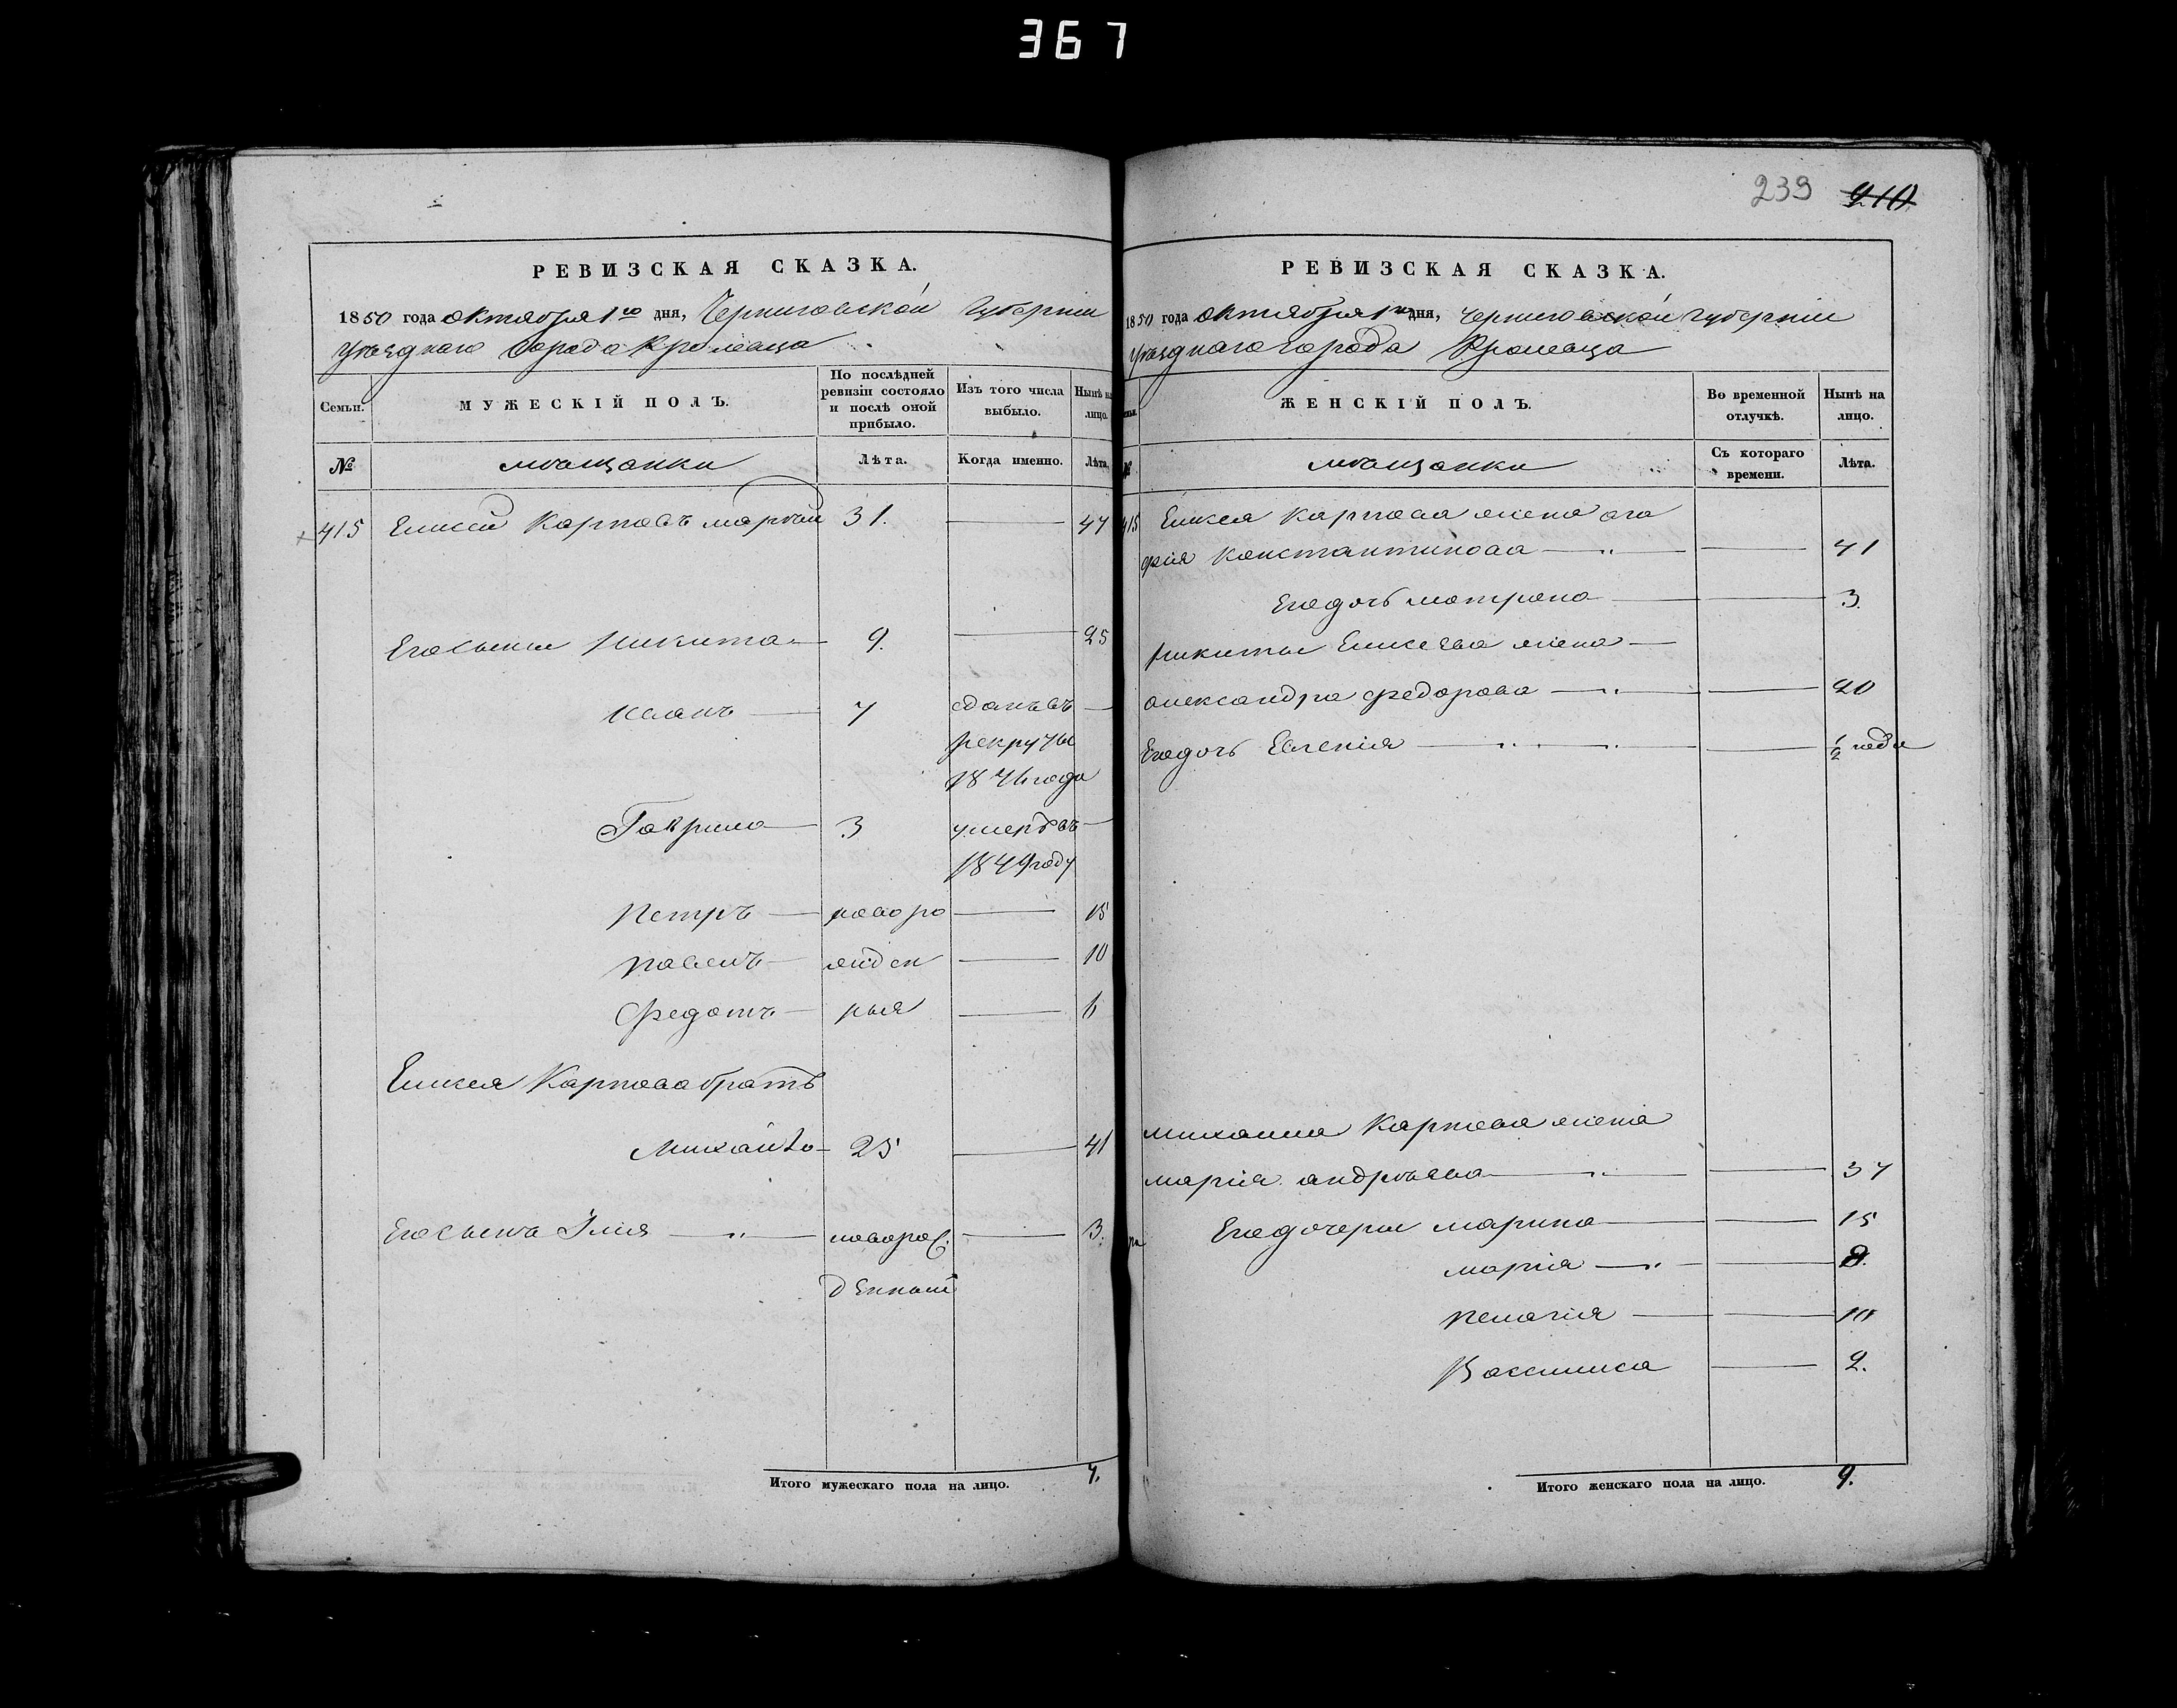 367
239 210
РЕВИЗСКАЯ СКАЗКА.
1850 года октября 1го дня, Черниговской Губернии
уѣзднаго города Кролевца
Семьи.
МУЖЕСКІЙ ПОЛЪ.
По послѣдней ревизіи состояло и послѣ оной прибыло.
Изъ того числа выбыло.
Нынѣ на лицо.
№ мѣщанки Лѣта. Когда именно. Лѣта.
415 Елисей Карповъ 31. 47
Его сынъя Никита 9. 25
Иванъ 7 сданъ въ
рекруты
1846 года
Гаврила 3 умеръ въ
1849 году
Петръ новоро 15
Павелъ жден 10
Федотъ ныя 6
Елисея Карпова братъ
Михайло 25 41
Его сынъ Илія новорож 3.
денный
Итого мужескаго пола на лицо. 7.
РЕВИЗСКАЯ СКАЗКА.
1850 года октября 1го дня, Черниговской губерніи
уѣзднаго города Кролевца
ЖЕНСКІЙ ПОЛЪ.
Во временной отлучкѣ.
Нынѣ на лицо.
№ мѣщанки Съ котораго времени. Лѣта.
415 Елисея Карпова жена ага
фія Константинова 41
Его дочь матрена 3.
Никиты Елисеева жена
александра федорова 20
Его дочь Евгенія 1/2 года
михаила Карпова жена
марія андрѣева 37
Его дочери марина 15
марія 8.
пелагія 10
Васшиса 2.
Итого женскаго пола на лицо. 9.